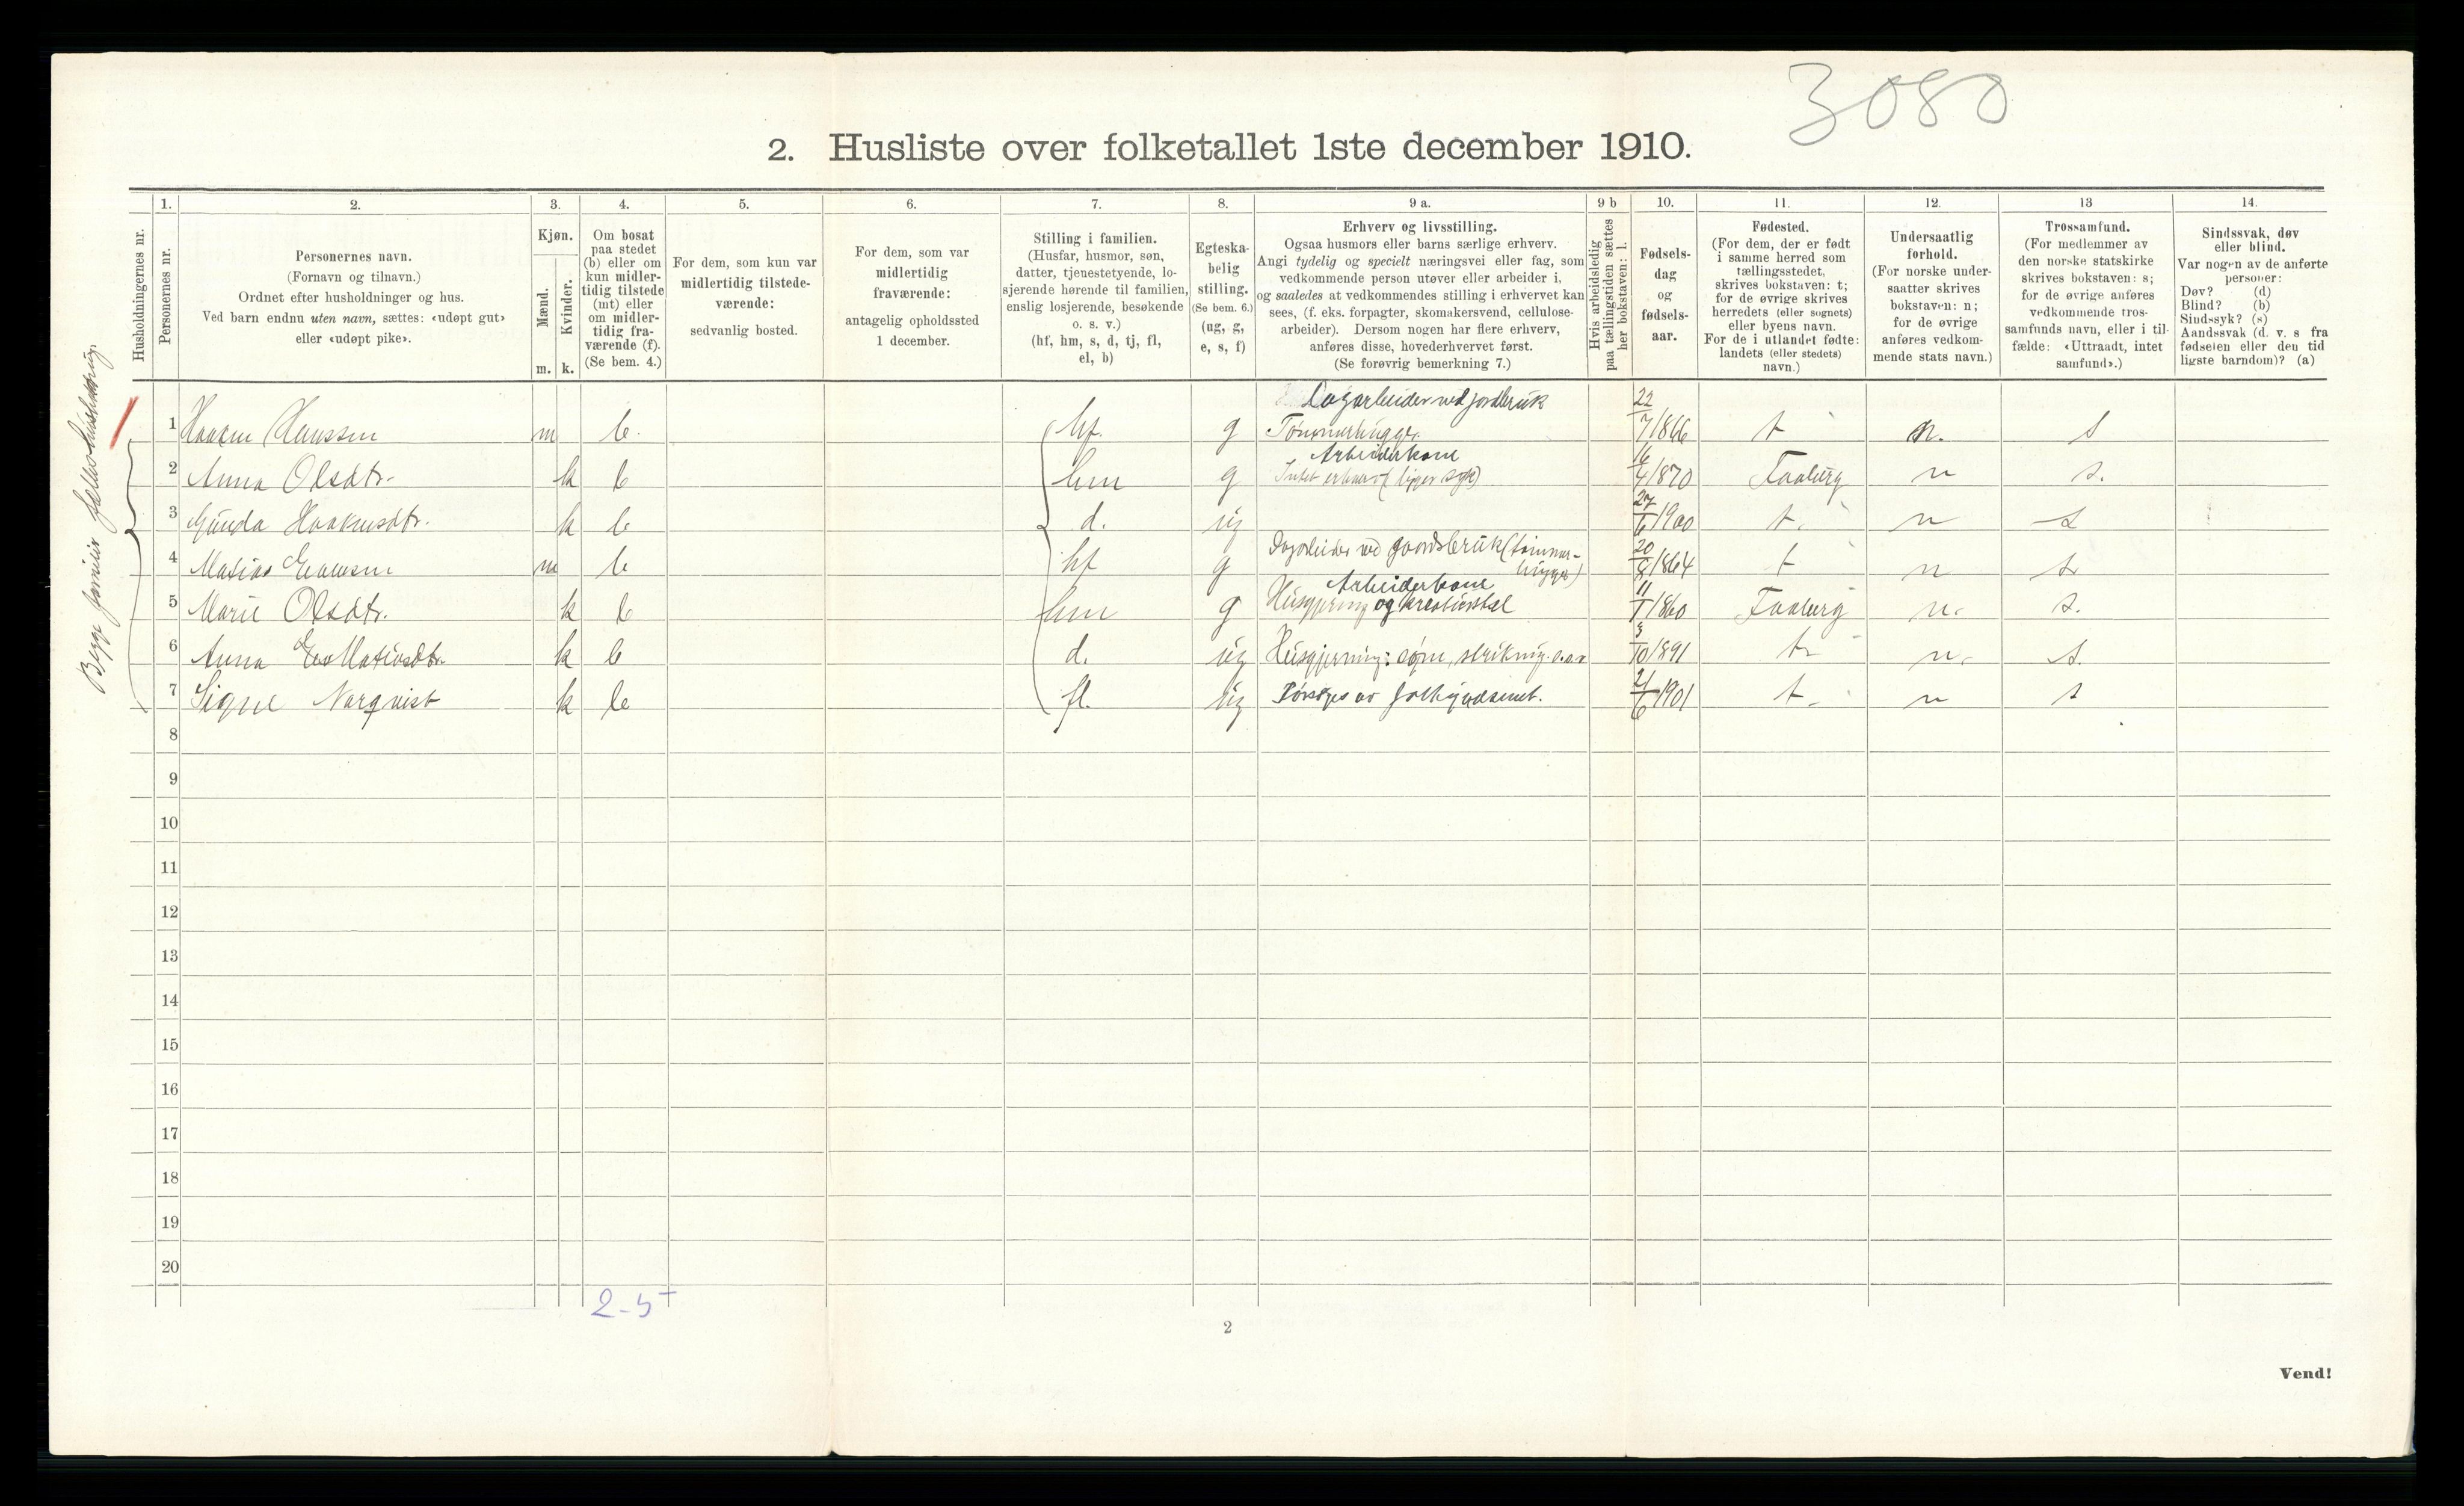 3080
2. Husliste over folketallet 1ste december 1910.
Husholdningernes nr.
1.
Personernes nr.
2.
Personernes navn.
(Fornavn og tilnavn.)
Ordnet efter husholdninger og hus.
Ved barn endnu uten navn, sættes: «udøpt gut»
eller «udøpt pike».
3.
Kjøn.
Mænd.
Kvinder.
m. k.
4.
Om bosat
paa stedet
(b) eller om
kun midler-
tidig tilstede
(mt) eller
om midler-
tidig fra-
værende (f).
(Se bem. 4.)
5.
For dem, som kun var
midlertidig tilstede-
værende:
sedvanlig bosted.
6.
For dem, som var
midlertidig
fraværende:
antagelig opholdssted
1 december.
7.
Stilling i familien.
(Husfar, husmor, søn,
datter, tjenestetyende, lo-
sjerende hørende til familien,
enslig losjerende, besøkende
o. s. v.)
(hf, hm, s, d, tj, fl,
el, b)
8.
Egteska-
belig
stilling.
(Se bem. 6.)
(ug, g,
e, s, f)
9 a.
Erhverv og livsstilling.
Ogsaa husmors eller barns særlige erhverv.
Angi tydelig og specielt næringsvei eller fag, som
vedkommende person utøver eller arbeider i,
og saaledes at vedkommendes stilling i erhvervet kan
sees, (f. eks. forpagter, skomakersvend, cellulose-
arbeider). Dersom nogen har flere erhverv,
anføres disse, hovederhvervet først.
(Se forøvrig bemerkning 7.)
9 b
Hvis arbeidsledig
paa tællingstiden sættes
her bokstaven: l.
10.
Fødsels-
dag
og
fødsels-
aar.
11.
Fødested.
(For dem, der er født
i samme herred som
tællingsstedet,
skrives bokstaven: t;
for de øvrige skrives
herredets (eller sognets)
eller byens navn.
For de i utlandet fødte:
landets (eller stedets)
navn.)
12.
Undersaatlig
forhold.
(For norske under-
saatter skrives
bokstaven: n;
for de øvrige
anføres vedkom-
mende stats navn.)
13
Trossamfund.
(For medlemmer av
den norske statskirke
skrives bokstaven: s;
for de øvrige anføres
vedkommende tros-
samfunds navn, eller i til-
fælde: «Uttraadt, intet
samfund».)
14.
Sindssvak, døv
eller blind.
Var nogen av de anførte
personer:
Døv? (d)
Blind? (b)
Sindssyk? (s)
Aandssvak (d. v. s fra
fødselen eller den tid
ligste barndom)? (a)
Begge familier fælles husholdning.
Dagarbeider ved jordbruk
1 Haakon Hanssen m b. hf. g Tømmerhugger. 22/7/866 t n. s
Arbeiderkone
2 Anna Olsdtr. k b hm g Intet erhverv (ligger syk) 16/4/870 Faaberg n s.
3 Gunda Haakensdtr. k b d. ug 27/6/1900 t. n s
4 Matias Evensen m b hf g Dagarbeider ved gaardsbruk (tømmer-
hugger) 20/8/864 t n s
Arbeiderkone
5 Marie Olsdtr. k b hm g Husgjerning og kreaturstel 11/1/860 Faaberg n. s.
6 Anna Matiasdtr. k b d. ug Husgjerning: søm, strikning. o.a.v 3/10/891 t n. s.
7 Signe Norqvist k b fl. ug Forsørges av fattigvæsenet. 21/6/1901 t. n s
8
9
10
11
12
13
14
15
16
17
18
19
20
2-5
2
Vend!